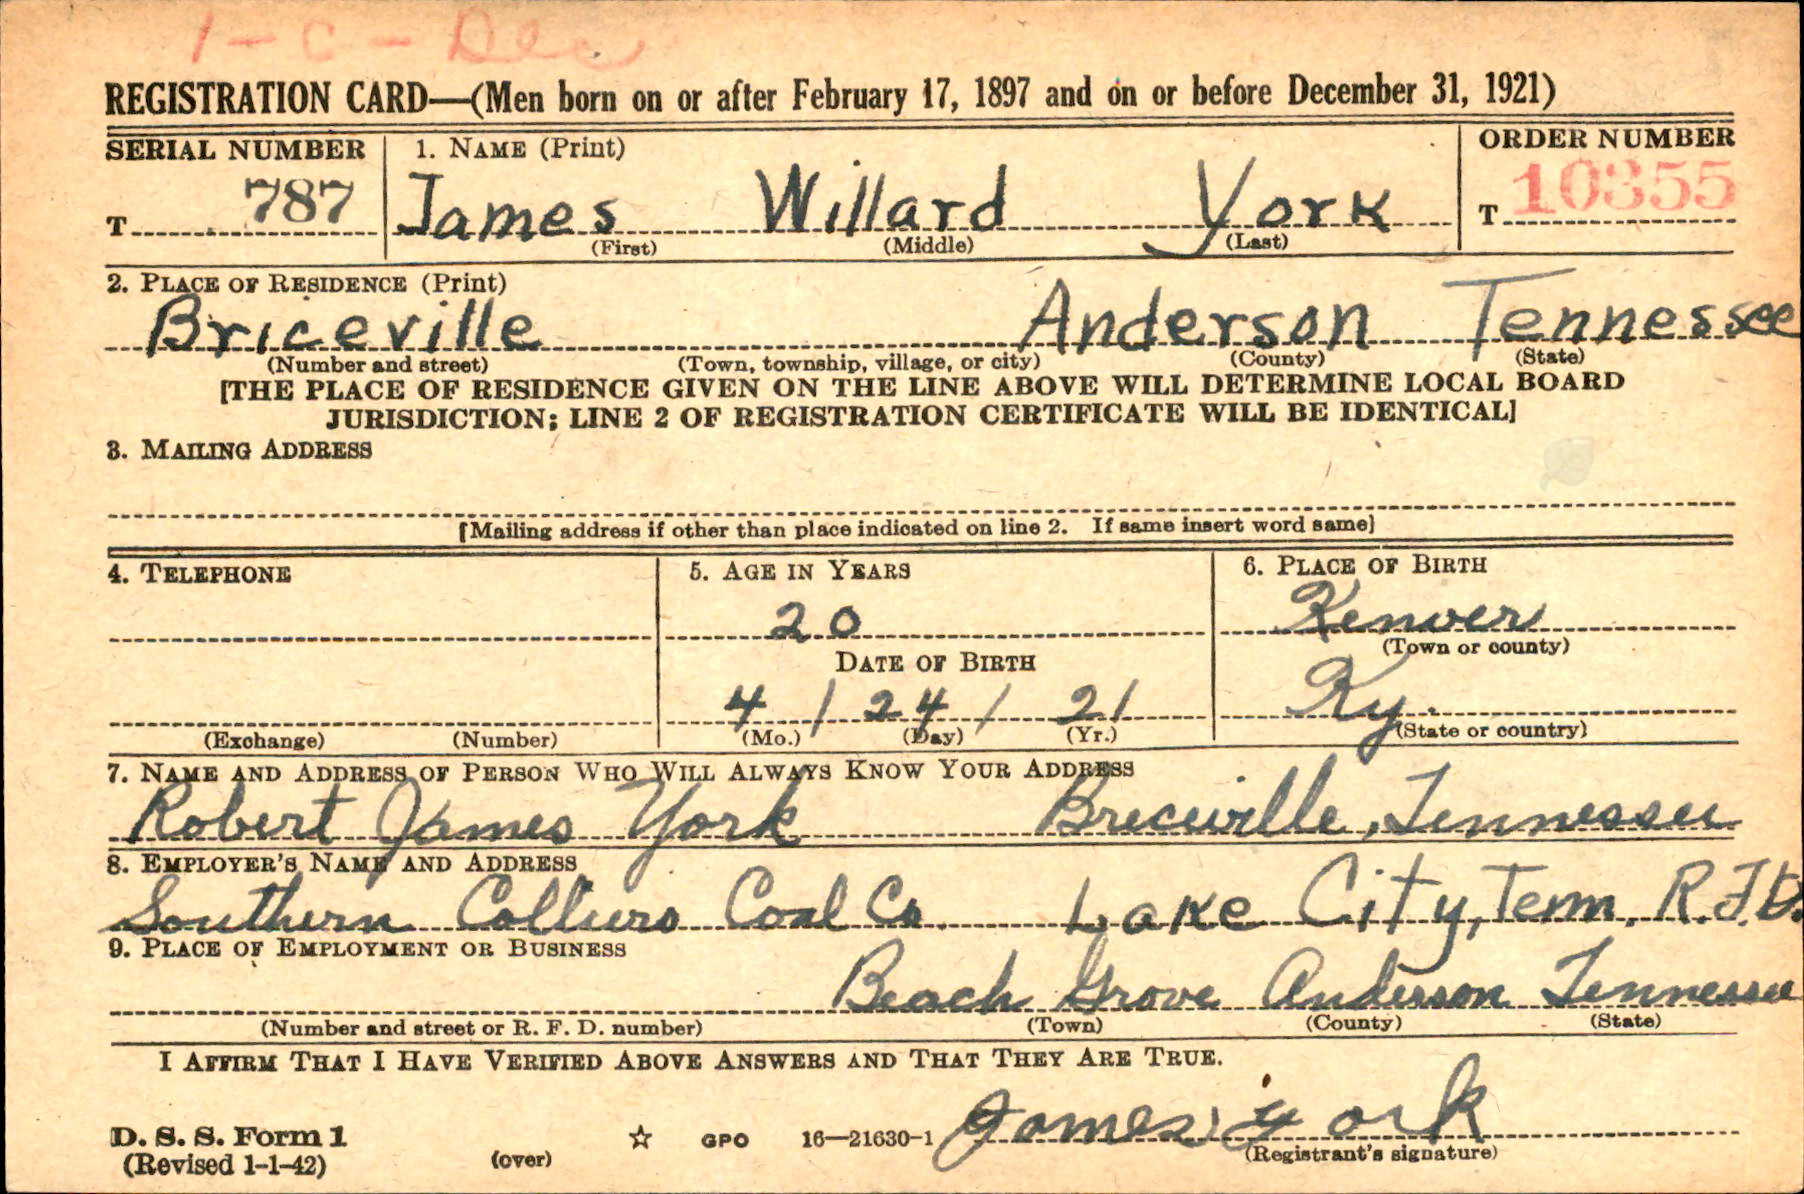 1 - C - Dec
REGISTRATION CARD—(Men born on or after February 17, 1897 and on or before December 31, 1921)
SERIAL NUMBER
1. NAME (Print)
ORDER NUMBER
T 787
James Willard York
T 10355
(First) (Middle) (Last)
2. PLACE OF RESIDENCE (Print)
Briceville Anderson Tennessee
(Number and street) (Town, township, village, or city) (County) (State)
[THE PLACE OF RESIDENCE GIVEN ON THE LINE ABOVE WILL DETERMINE LOCAL BOARD
JURISDICTION; LINE 2 OF REGISTRATION CERTIFICATE WILL BE IDENTICAL]
3. MAILING ADDRESS
[Mailing address if other than place indicated on line 2. If same insert word same]
4. TELEPHONE
(Exchange) (Number)
5. AGE IN YEARS
20
DATE OF BIRTH
4 / 24 / 21
(Mo.) (Day) (Yr.)
6. PLACE OF BIRTH
Kenver
(Town or county)
Ky.
(State or country)
7. NAME AND ADDRESS OF PERSON WHO WILL ALWAYS KNOW YOUR ADDRESS
Robert James York Briceville, Tennessee
8. EMPLOYER'S NAME AND ADDRESS
Southern Colliers Coal Co. Lake City, Tenn. R.F.D.
9. PLACE OF EMPLOYMENT OR BUSINESS
Beach Grove Anderson Tennessee
(Number and street or R. F. D. number) (Town) (County) (State)
I AFFIRM THAT I HAVE VERIFIED ABOVE ANSWERS AND THAT THEY ARE TRUE.
James York
(Registrant's signature)
D. S. S. Form 1
(Revised 1-1-42)
(over)
☆ GPO 16—21630-1